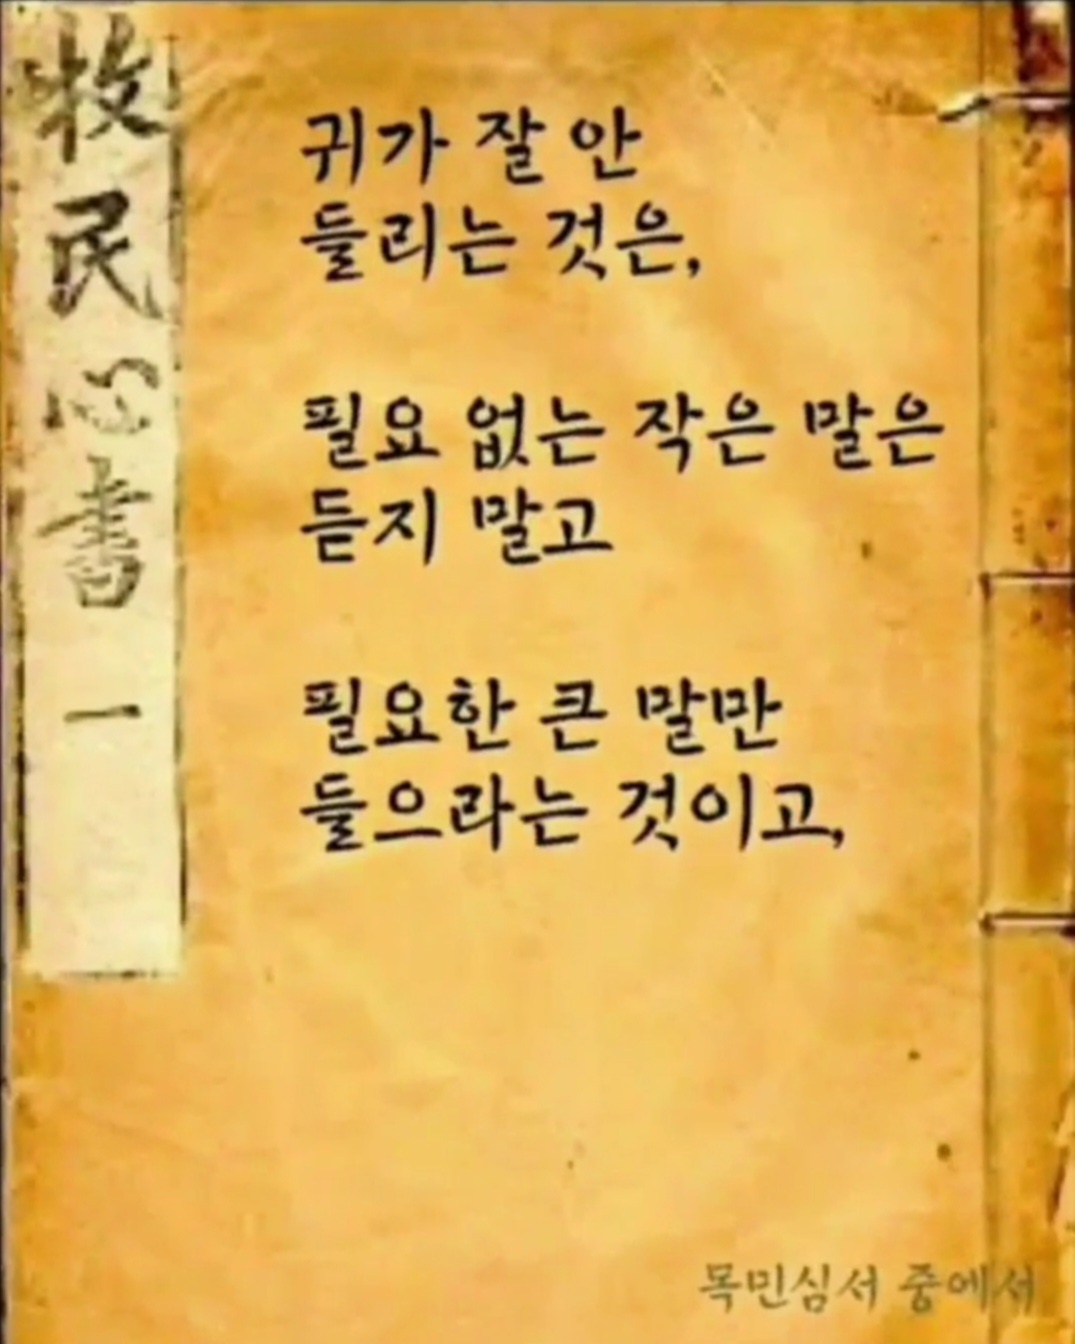 牧民心書 一
귀가 잘 안
들리는 것은,
필요 없는 작은 말은
듣지 말고
필요한 큰 말만
들으라는 것이고,
목민심서 중에서